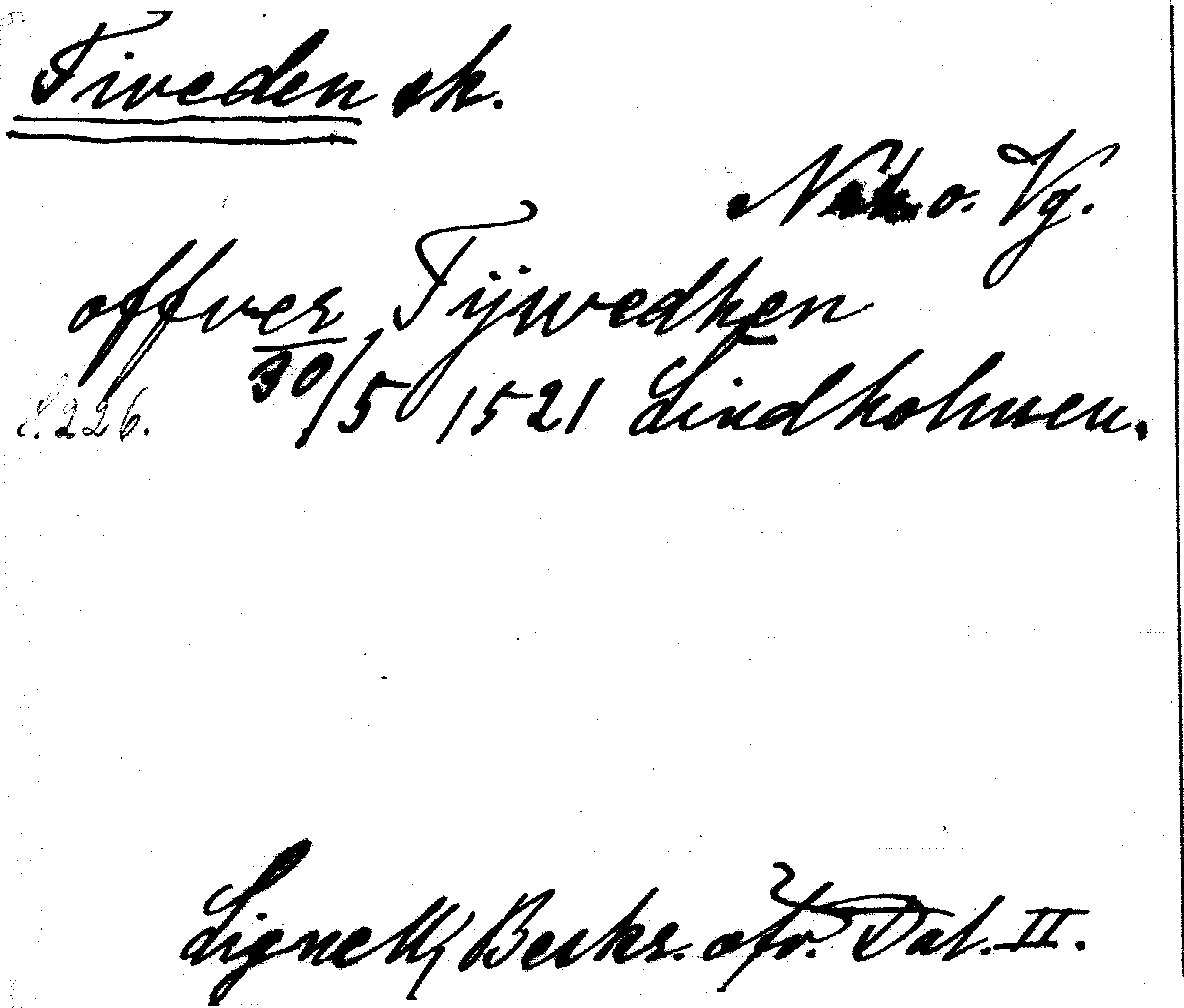 Tiveden sk.
o. Vg.
offver Tijwedhen
s. 226. 30/5 1521 Lindholmen.
Lignell, Beskr. öfv. Dal. II.